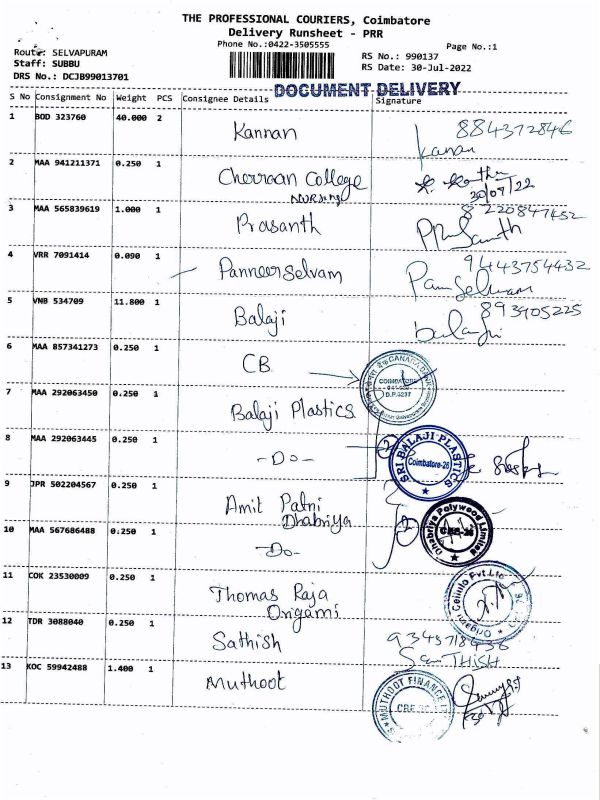 THE PROFESSIONAL COURIERS, Coimbatore
Delivery Runsheet - PRR
Phone No.:0422-3505555
Page No.:1
Route: SELVAPURAM
RS No.: 990137
Staff: SUBBU
RS Date: 30-Jul-2022
DRS No.: DCJB99013701
DOCUMENT DELIVERY
S No Consignment No Weight PCS Consignee Details Signature
1 BOD 323760 40.000 2 Kannan 884372846
Kanan
2 MAA 941211371 0.250 1 Cherraan College
NURSING 30/07/22
3 MAA 565839619 1.000 1 Prasanth 8220847452
4 VRR 7091414 0.090 1 Panneerselvam 9443754432
5 VNB 534709 11.800 1 Balaji 893405225
balaji
6 MAA 857341273 0.250 1 CB
CANARA BANK
COIMBATORE
D.P.
7 MAA 292063450 0.250 1 Balaji Plastics
8 MAA 292063445 0.250 1 -Do-
SRI BALAJI PLASTICS
Coimbatore-26
9 JPR 502204567 0.250 1 Amit Patni
Dhabriya
Dhabriya Polywood Limited
CBE-26
10 MAA 567686488 0.250 1 -Do-
11 COK 23530009 0.250 1 Thomas Raja
Origami
Origami Cellulo Pvt.Ltd
12 TDR 3088040 0.250 1 Sathish 9343718436
SaTHISH
13 KOC 59942488 1.400 1 Muthoot
MUTHOOT FINANCE LTD